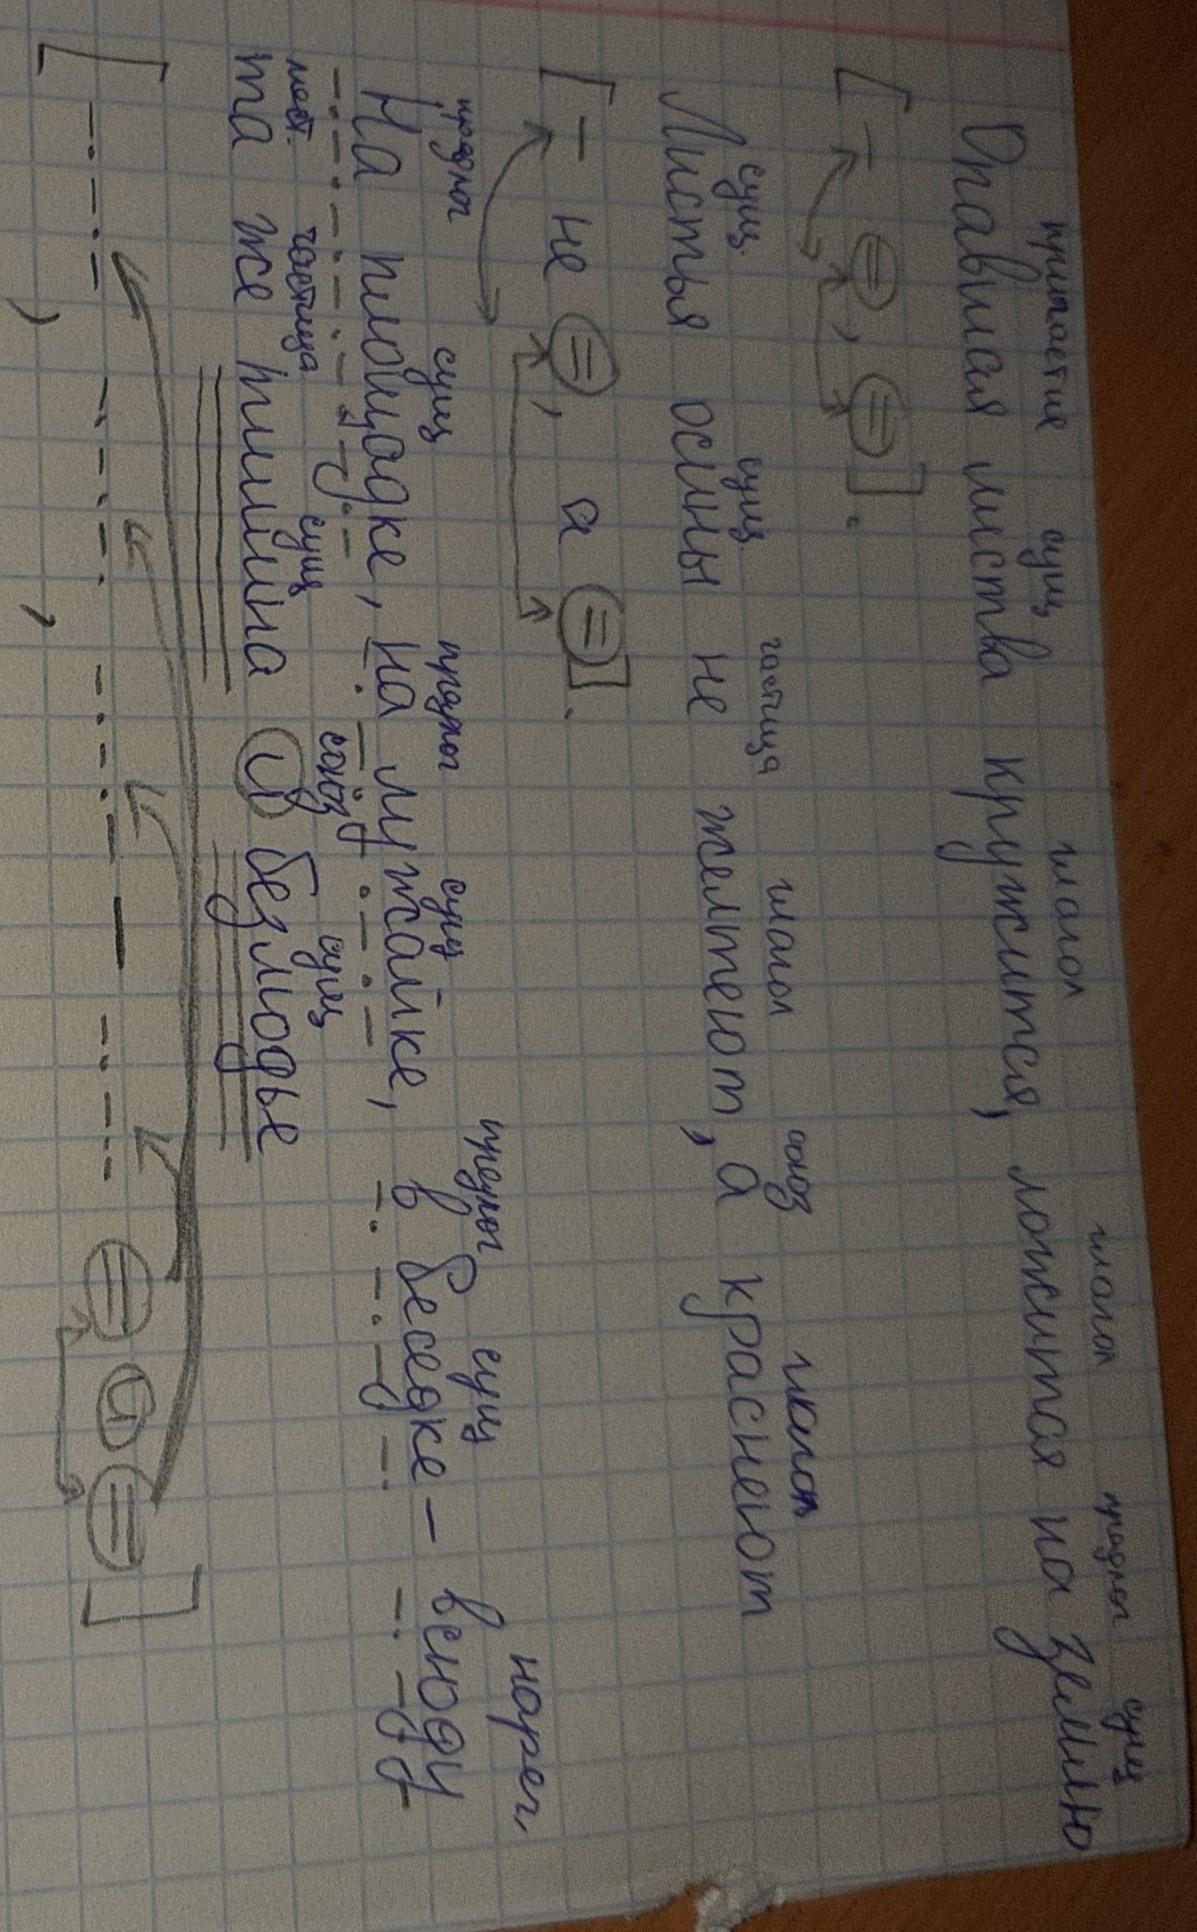 причастие сущ глагол глагол предлог сущ
Опавшая листва кружится, ложится на землю
[ – =, = ].
сущ. сущ частица глагол союз глагол
Листья осины не желтеют, а краснеют
[ – не =, а = ].
предлог сущ предлог сущ предлог сущ нареч.
На площадке, на лужайке, в беседке – всюду
мест. частица сущ союз сущ
та же тишина и безлюдье
[ , , – = и = ]